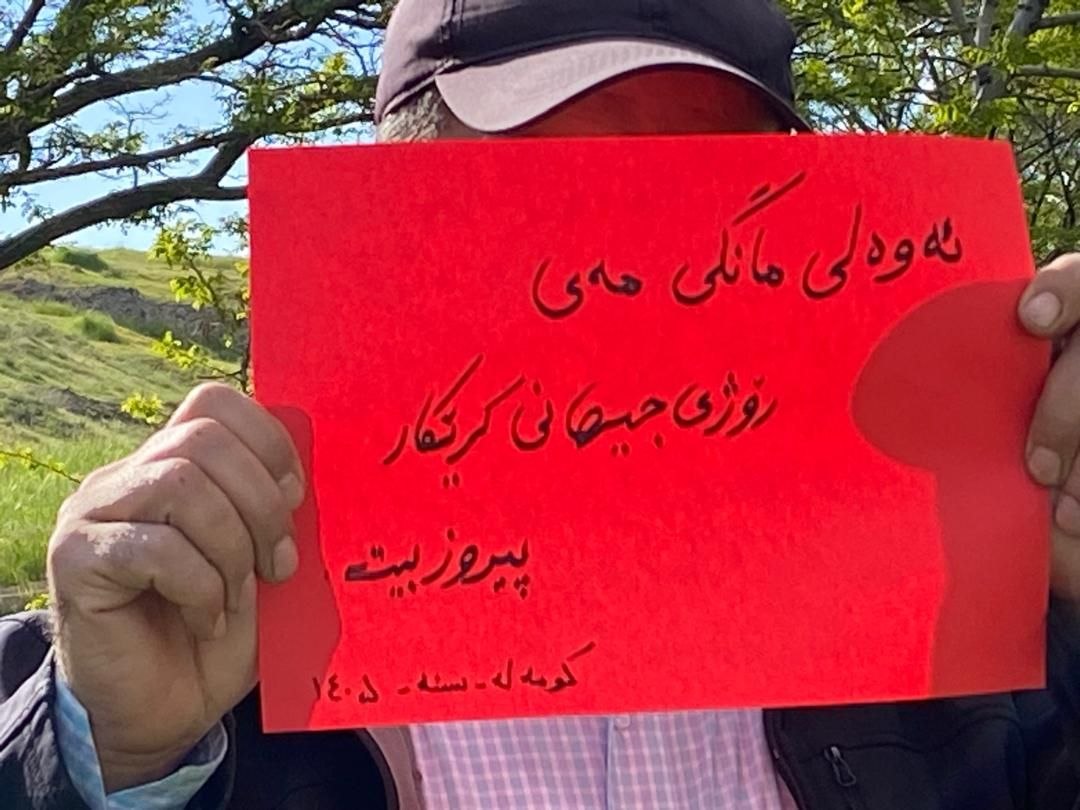 ئەوەلی مانگی مەی
رۆژی جیهانی کرێکار
پیرۆز بیت
کومەلە - سنە - ١٤٠٥